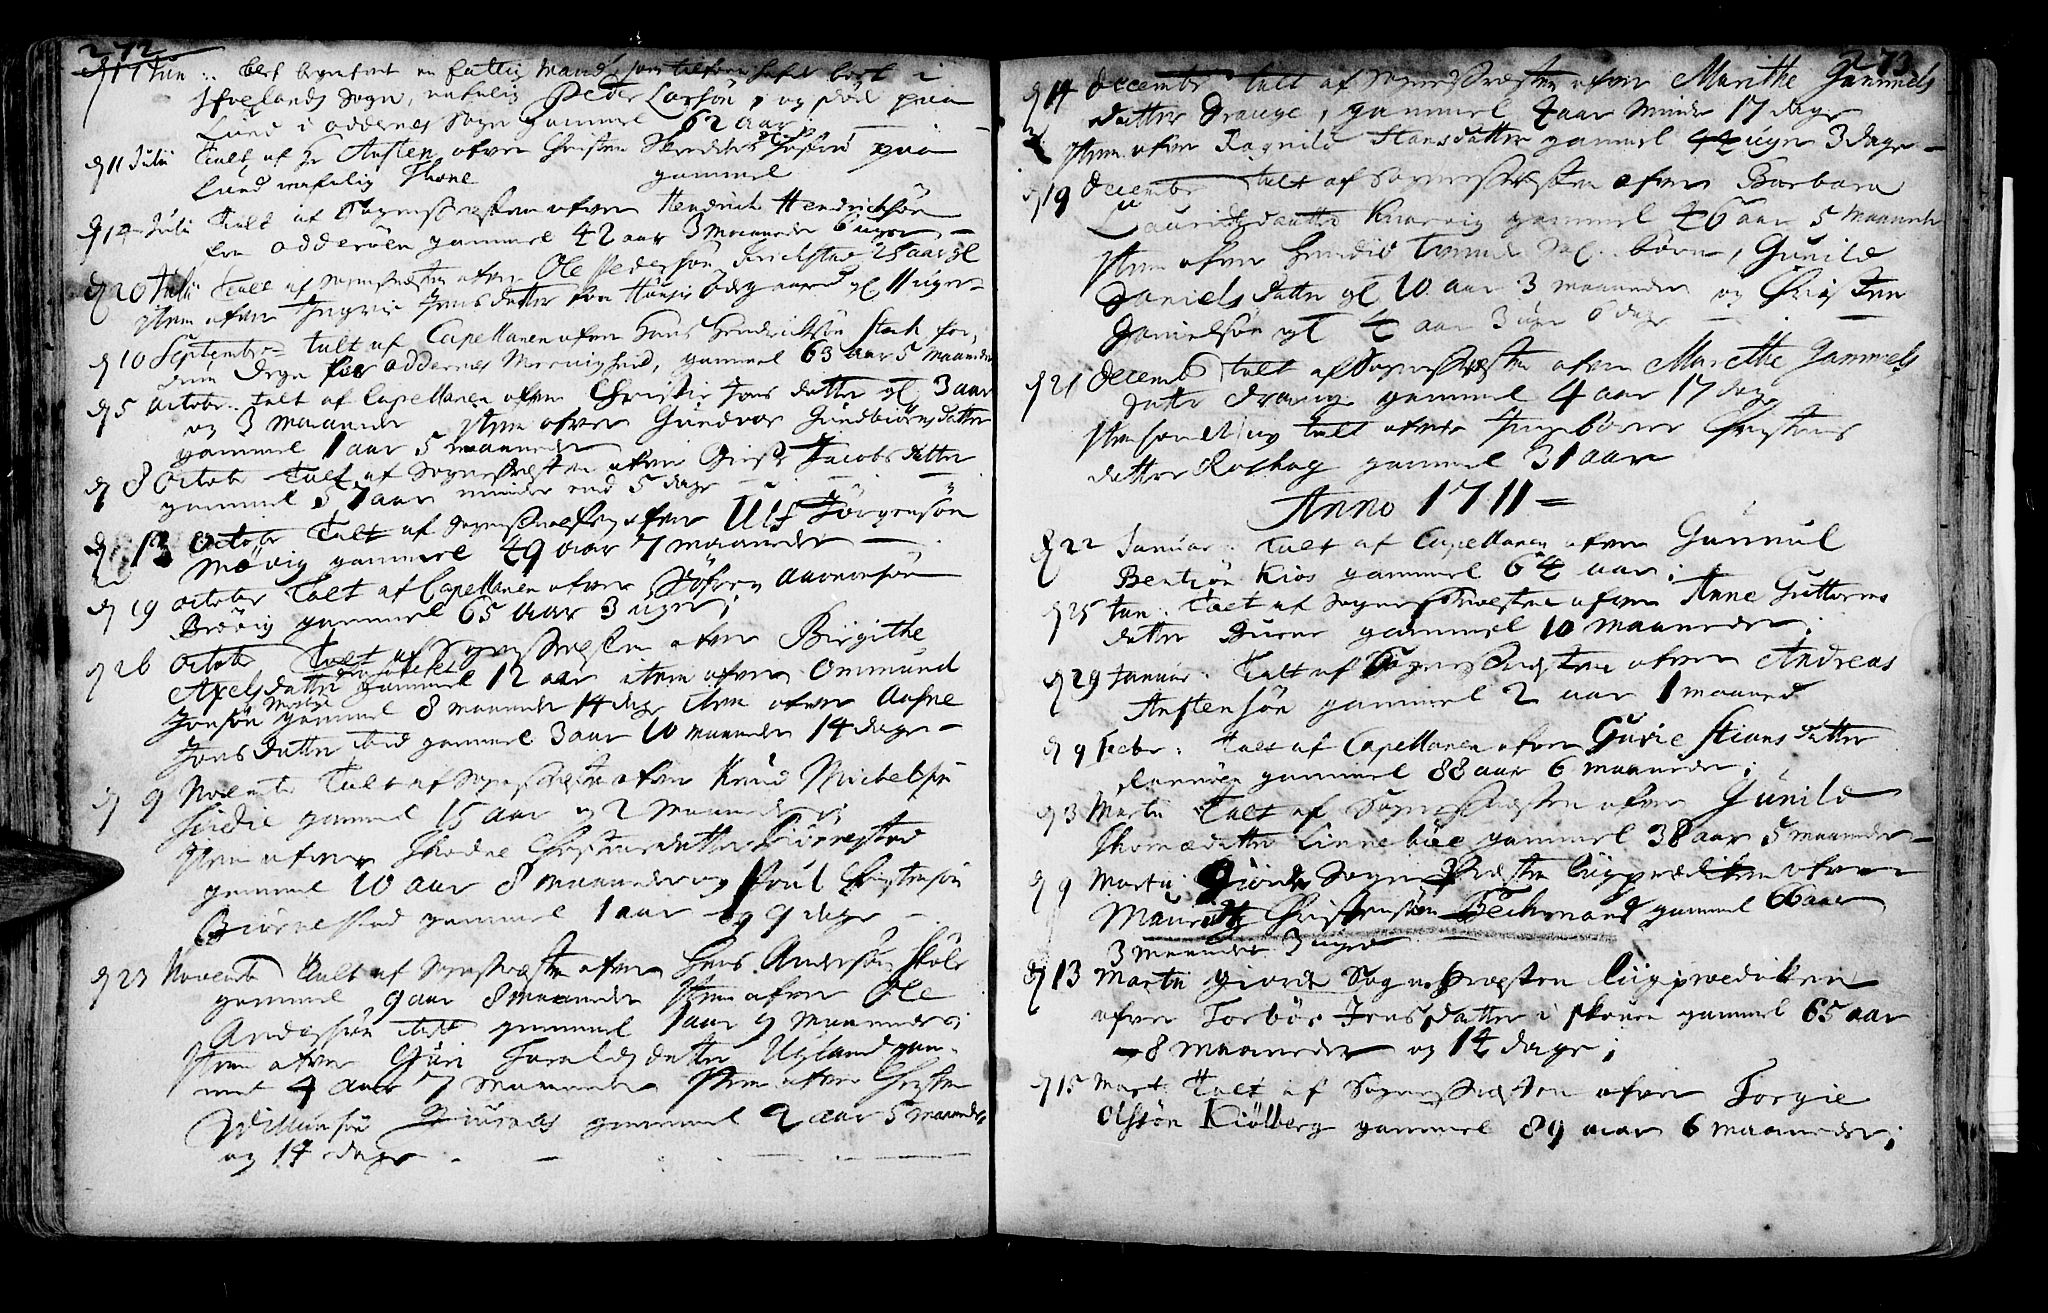 272
d 17 Jun: blef begrafvet en fattig Mand, som tilforn hafde boet i
Hvelands Sogn, nafnlig Peder Larssön, og död paa
Lund i Oddernes Sogn gammel 62 aar
d 11 Julii Talt af Hr Austen ofver Christen Skredders Hustrue paa
Lund nafnlig Thone gammel
d 14 Juli Talt af Sognepræsten ofver Hendrich Hendrichsön
fra Odderöen gammel 42 aar 3 Maaneder 6 uger
d 20 Julii Talt af Sognepræsten ofver Ole Pedersön
Item ofver Ingrie Jensdatter fra gl 11 uger
d 10 Septembr talt af Capellanen ofver Hans Hendrichsön Stock for,
dum Degn for Oddernes Menighed, gammel 63 aar 5 Maaneder
d 5 octobr. talt af Capellanen ofver Christie Jons datter gl 3 aar
og 3 Maaneder Item ofver Gundvor Gundbiörnsdatter
gammel 1 aar 5 Maaneder
d 8 octobr Talt af Sognepræsten ofver Jacobs datter
gammel 57 aar minder end 5 dage
d 13 October Talt af Sognepræsten ofver Ulf Jörgensön
Mövig gammel 49 aar 7 maaneder
d 19 october Talt af Capellanen ofver Söfren Aanonsön
Brövig gammel 65 aar 3 uger;
d 26 october Talt af Sognepræsten ofver Birgithe
Axelsdatter gammel 12 aar item ofver Ommund
Jonsön gammel 8 maaneder 14 dage Item ofver Aasne
Jonsdatter ibid gammel 3 aar 10 maaneder 14 dage
d 9 Novembr Talt af Sognepræsten ofver Knud Michelsön
gammel 15 aar og 2 Maaneder;
Item ofver Thodne Christensdatter Biörnestad
gammel 10 aar 8 maaneder og Poul Christensön
Biörnestad gammel 1 aar og 9 dage
d 23 Novembr Talt af Sognepræsten ofver Jens Andersön
gammel 9 aar 8 maaneder Item ofver Ole
Andersön ibid gammel 1 aar 9 Maaneder;
Item ofver Guri Toralds datter Ugland gam-
mel 4 aar 7 maaneder Item ofver Christen
Villumsön gammel 2 aar 5 maaneder
og 14 dage
273
d 14 Decembr talt af Sognepræsten ofver Marithe Gammels
datter Drange, gammel 4 aar Minder 17 dage
Item ofver Ragnild Hansdatter gammel uger 3 dage
d 19 Decembr talt af Sognepræsten ofver Barbara
Lauridsdatter Kuervig gammel 46 aar 5 Maaneder
Item ofver börn, Gunild
Daniels datter gl 10 aar 3 maaneder og Christen
Danielsön gl aar 3 uger 6 dage
d 21 Decemb talt af Sognepræsten ofver Marithe Gammels
datter Drange gammel 4 aar 17 dage
Item talt ofver Ingeborre Christens
datter gammel 31 aar
Anno 1711
d 22 Januar: Talt af Capellanen ofver Gunnul
Bentsön Kios gammel 64 aar;
d 25 Jan: Talt af Sognepræsten ofver Anne Guttorms
datter gammel 10 maaneder;
d 29 Januar: Talt af Sognepræsten ofver Andreas
Austensön gammel 2 aar 1 maaned
d 9 Febr: Talt af Capellanen ofver Gurie Stians datter
gammel 88 aar 6 maaneder;
d 3 Martii Talt af Sognepræsten ofver Gunild
Thomædatter Linneböe gammel 38 aar 5 maaneder
d 9 Martii Giorde Sognepræsten liigprædiken ofver
Mauritz Christensön Bechmand gammel 66 aar
3 maaneder 3 uger
d 13 Martii giorde Sognepræsten liigprædiken
ofver Torbör Jens datter i skouen gammel 65 aar
8 maaneder og 14 dage;
d 15 Mart: Talt af Sognepræsten ofver Torgie
Olssön Kiölberg gammel 89 aar 6 maaneder;